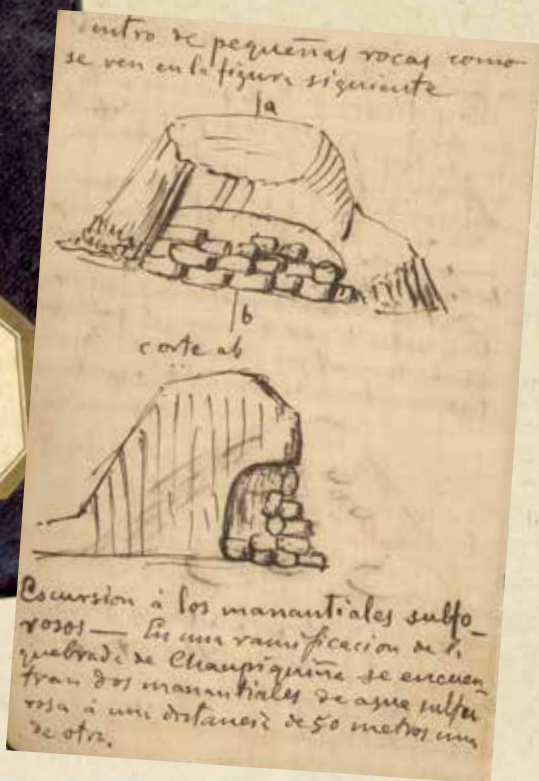 dentro de pequeñas rocas como
se ven en la figura siguiente
a
b
corte ab
Escursion à los manantiales sulfo_
rosos — En una ramificacion de la
quebrada de Chaupiquiña se encuen
tran dos manantiales de agua sulfu
rosa à una distancia de 50 metros una
de otra.